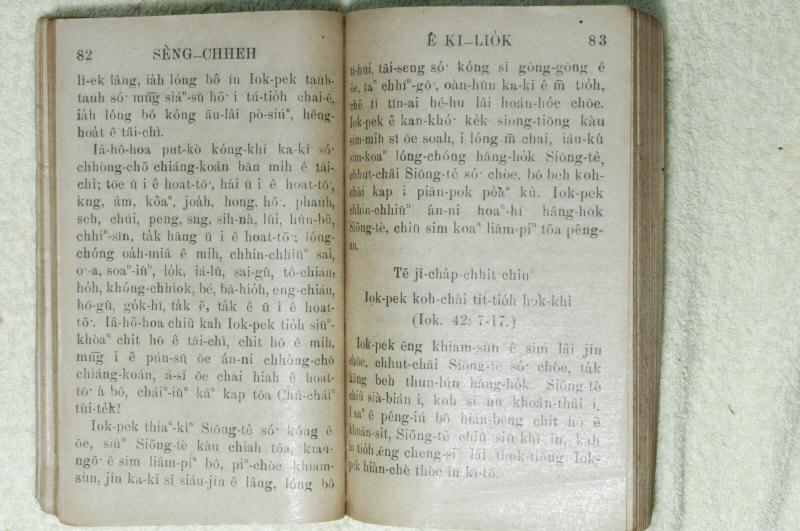 82 SÈNG–CHHEH
lī-ek lâng, iáh lóng bô ín Iok-pek tauh-
tauh só͘ mn̄g siáⁿ-sū hō͘ i tú-tio̍h chai-ē,
iáh lóng bô kóng āu-lâi pò-siúⁿ, hêng-
hoa̍t ê tāi-chì.
Iâ-hô-hoa put-kò kóng-khí ka-kī só͘
chhòng-chō chiáng-koán bān mih ê tāi-
chì; tōe ū i ê hoat-tō͘, hái ū i ê hoat-tō͘,
kng, àm, kôaⁿ, joa̍h, hong, hō͘, phauh,
seh, chúi, peng, sng, sih-nà, lûi, hûn-bū,
chhiⁿ-sin, ta̍k hāng ū i ê hoat-tō͘; lóng-
chóng oa̍h-miā ê mih, chhin-chhiūⁿ sai,
o͘-a, soaⁿ-iûⁿ, lo̍k, iá-lû, sai-gû, tô-chiáu,
ho̍h, khóng-chhiok, bé, bā-hio̍h, eng-chiáu,
hô-gû, go̍k-hî, ta̍k ê, ta̍k ê ū i ê hoat-
tō͘. Iâ-hô-hoa chiū kah Iok-pek tio̍h siūⁿ-
khòaⁿ chit hō ê tāi-chì, chit hō ê mih,
mn̄g i ê pún-sū ōe án-ni chhòng-chō
chiáng-koán, á-sī ōe chai hiah ê hoat-
tō͘ á bô, cháiⁿ-iūⁿ káⁿ kap tōa Chú-cháiⁿ
tùi-te̍k?
Iok-pek thiaⁿ-kìⁿ Siōng-tè só͘ kóng ê
ōe, siūⁿ Siōng-tè kàu chiah tōa, kiau-
ngō͘ ê sim liâm-piⁿ bô, pìⁿ-chòe khiam-
sùn, jīn ka-kī sī siáu-jîn ê lâng, lóng bô
Ê KI–LIO̍K 83
tì-hūi, tāi-seng só͘ kóng sī gōng-gōng ê
ōe, taⁿ chhíⁿ-gō͘, oàn-hūn ka-kī ê m̄ tio̍h,
chē tī tîn-ai hé-hu lāi hoán-hóe chōe.
Iok-pek ê kan-khó͘ ke̍k siong-tiōng kàu
sím-mih sī ōe soah, i lóng m̄ chai, iáu-kú
sim-koaⁿ lóng-chóng hâng-ho̍k Siōng-tè,
chhut-chāi Siōng-tè só͘ chòe, bô beh koh-
chài kap i piān-pok po̍ahⁿ kù. Iok-pek
chhin-chhiūⁿ án-ni hoaⁿ-hí hâng-ho̍k
Siōng-tè, chiū sim koaⁿ liâm-piⁿ tōa pêng-
an.
Tē jī-cha̍p-chhit chiuⁿ
Iok-pek koh-chài tit-tio̍h hok-khì
(Iok. 42: 7-17.)
Iok-pek ēng khiam-sùn ê sim lâi jīn
chōe, chhut-chāi Siōng-tè só͘ chòe, ta̍k
hāng beh thun-lún hâng-ho̍k. Siōng-tè
chiū sià-bián i, koh sī un khoán-thāi i.
I saⁿ ê pêng-iú bô hián-bêng chit hō ê
khoán-sit, Siōng-tè chiū siū-khì in, kah
in tio̍h ēng cheng-siⁿ lâi tho̍k-tiōng Iok-
pek hiàn-chè thòe in kî-tó.